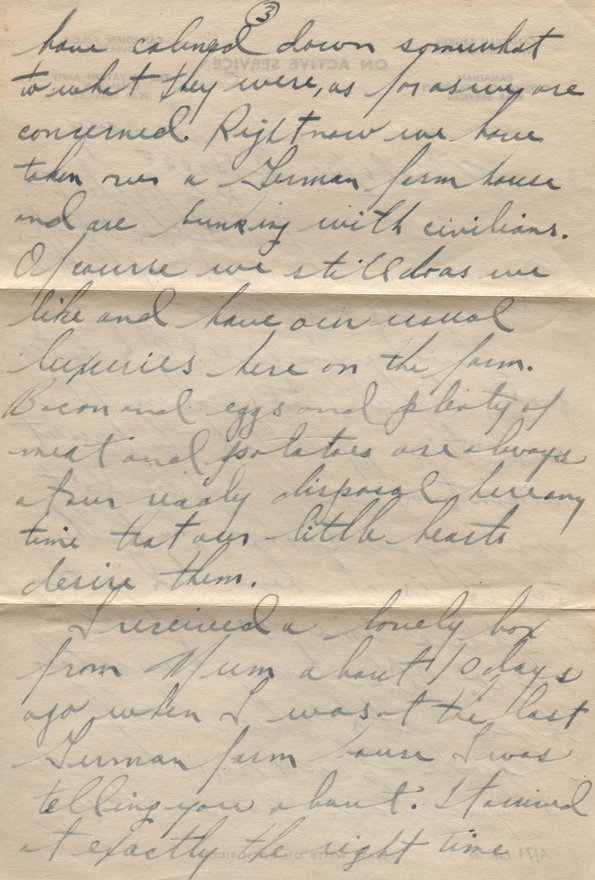 ③
have calmed down somewhat
to what they were, as far as we are
concerned. Right now we have
taken over a German farm house
and are bunking with civilians.
Of course we still do as we
like and have our usual
luxuries here on the farm.
Bacon and eggs and plenty of
meat and potatoes are always
at our ready disposal here any
time that our little hearts
desire them.
I received a lovely box
from Mum about 10 days
ago when I was at the last
German farm house I was
telling you about. It arrived
at exactly the right time
ON ACTIVE SERVICE